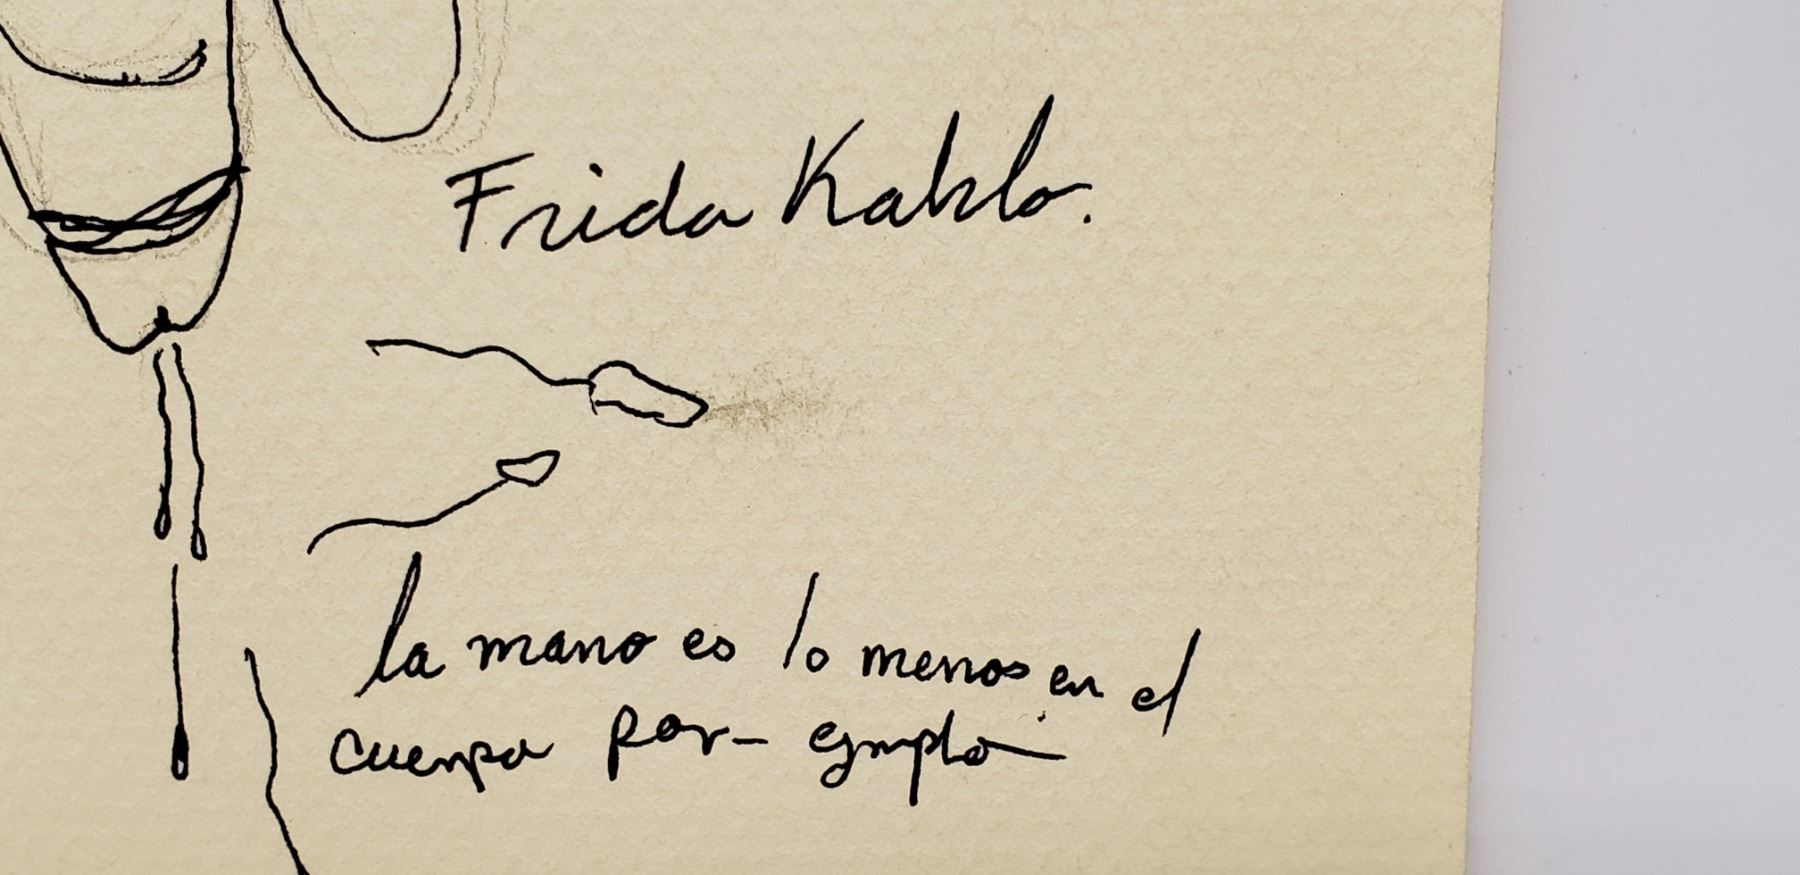 Frida Kahlo.
la mano es lo menos en el
cuerpo por- ejmplo